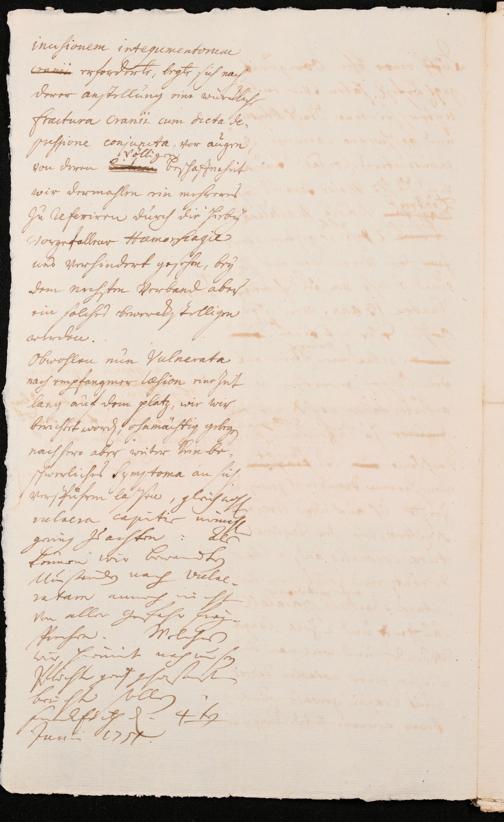 incisionem integumentorum
cranii erforderte, legte sich nach
derer anstellung eine würcklich
fractura cranii cum dicta de-
pressione conjuncta, vor augen
völligen
von deren beschaffenheit
wir dermahlen ein mehreres
zu referiren durch die hirbey
vorgefallene Hæmorrhagie
uns verhindert gesehen, bey
dem nechsten verband aber
ein solches
werden.
Obwohlen nun Vulnerata
nach empfangener læsion eine Zeit
lang auf dem platz, wie wir
berichtet worden, ohnmächtig gelegen
nachhero aber weiter kein be-
schwerliches Symptoma an sich
verspühren lassen, gleichwohl
vulnera capitis
gering zu achten: als
können wir bewandten
Umständen nach Vulne-
ratam annoch nicht
von aller gefahr frey-
sprechen. Welches
wir hiemit nach unsern
Pflicht
4 t
Junii 1751.